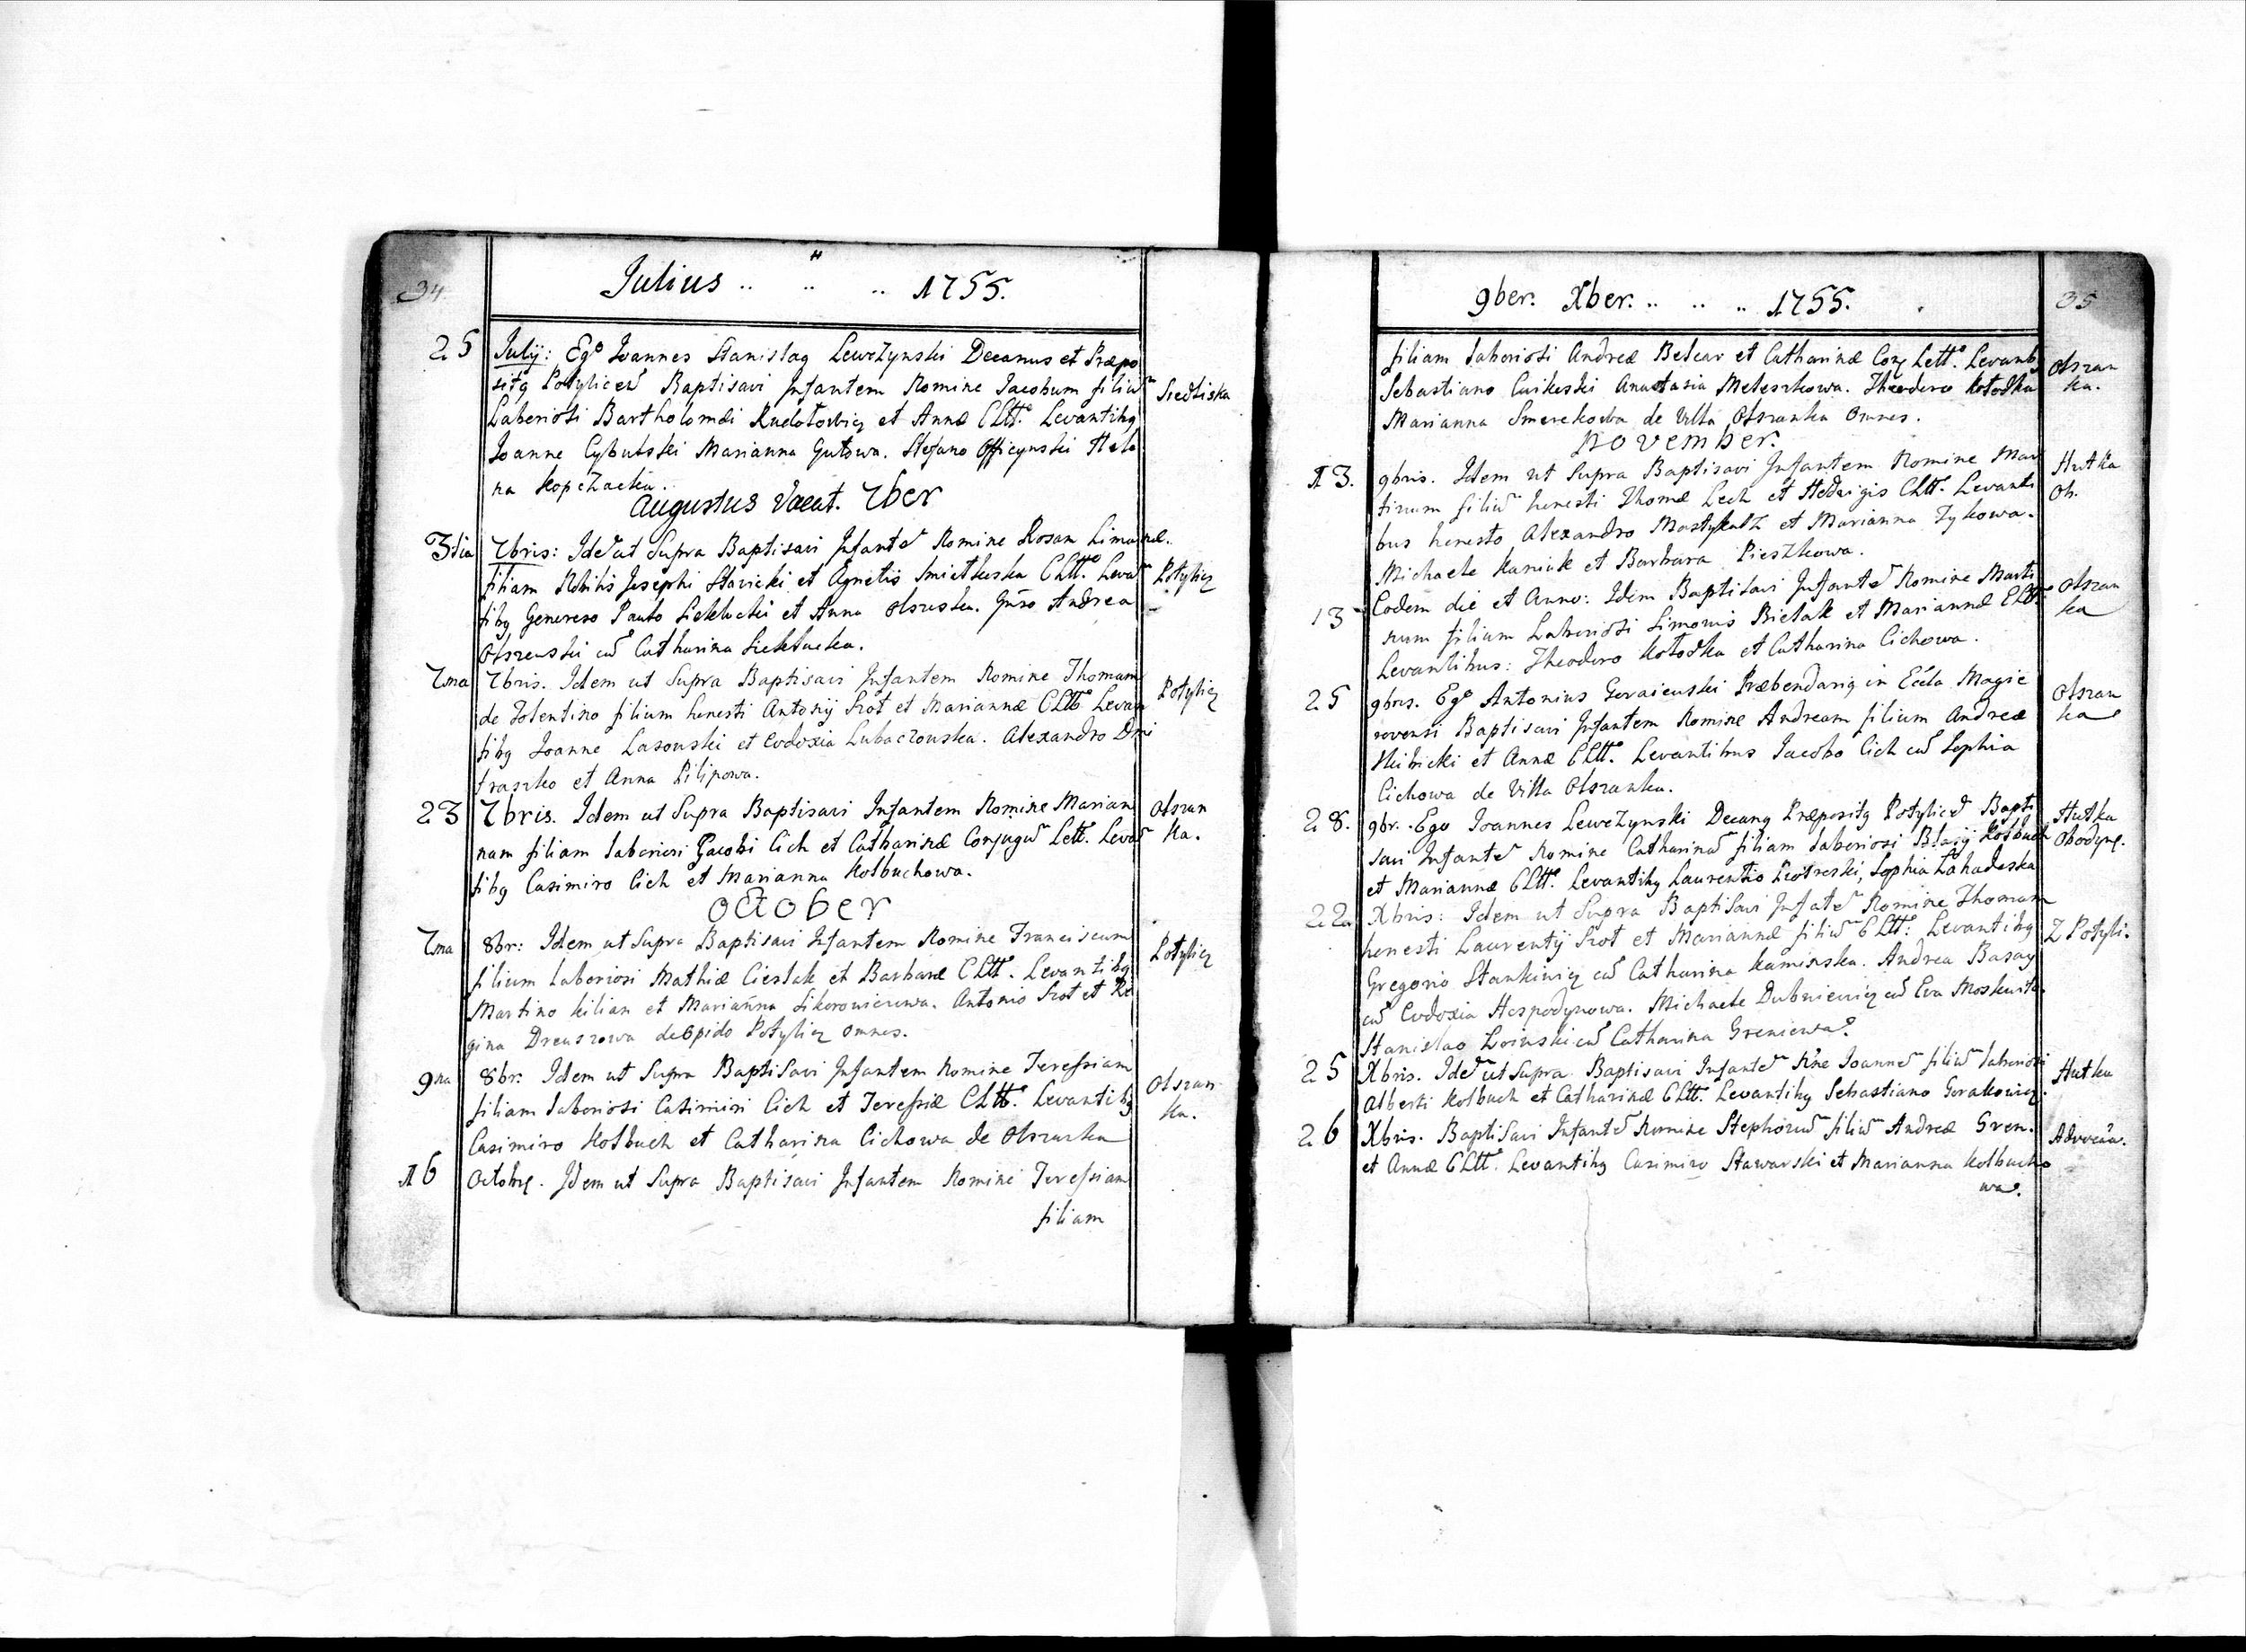 34
Julius .. .. .. 1755.
25 July: Ego Joannes Stanislaq Lewczynski Decanus et Præpo
sitq Potylicen Baptisavi Infantem Nomine Jacobum filiu Siedliska
Laboriosi Bartholomæi Kudłotowicz et Annæ CLtt. Levantibq
Joanne Cybulski Marianna Gutowa. Stefano Officynski Hele
na Kopczacka.
Augustus Vacat. 7ber
3tia 7bris: Ide ut Supra Baptisavi Infante Nomine Rosam Limanæ.
filiam Nobilis Josephi Stavicki et Agnetis CLtt. Leva Potylicz
tibq Generoso Paulo et Anna Olszeska. Gnso Andrea
Olszeuski cu Catharina
7ma 7bris. Idem ut Supra Baptisavi Infantem Nomine Thomam Potylicz
de Tolentino filium honesti Antonij Szot et Mariannæ CLtt Levan
tibq Joanne Lasouski et Eudoxia Lubaczouska. Alexandro Dmi
traszko et Anna Pilipowa.
23 7bris. Idem ut Supra Baptisavi Infantem Nomine Marian Olszan
nam filiam laboriosi Jacobi Cich et Catharinæ Conjugu Lett. Leva ka.
tibq Casimiro Cich et Marianna Kolbuchowa.
October
7ma 8br: Idem ut Supra Baptisavi Infantem Nomine Franciscum Potylicz
filium Laboriosi Mathiæ Cieslak et Barbaræ CLtt. Levantibq
Martino Kilian et Marianna Sikorowiczowa. Antonio Szot et Re
gina Dreuszowa de Opido Potylicz omnes.
9na 8br. Idem ut Supra Baptisavi Infantem Nomine Teressiam Olszan
filiam laboriosi Casimiri Cich et Teressiæ CLtt. Levantibq ka.
Casimiro Kolbuch et Catharina Cichowa de Olszanka
16 Octobrę. Idem ut Supra Baptisavi Infantem Nomine Teressiam
filiam
9ber. Xber. .. .. .. 1755. 35
filiam laboriosi Andreæ Belcar et Catharinæ Conj Lett. Levantib Olszan
Sebastiano Cuikeski Anastasia Meleszkowa. Theodoro Kołodka ka.
Marianna Smerekowa de Villa Olszanka Omnes.
November.
13. 9bris. Idem ut Supra Baptisavi Infantem Nomine Mar Hutka
tinum filiu honesti Thomæ Lech et Hedvigis CLtt. Levanti Ob.
bus honesto Alexandro Mostykalz et Marianna Zykowa.
Michaele Kaniuk et Barbara Pieszkowa.
13 Eodem die et Anno: Idem Baptisavi Infante Nomine Marti Olszan
num filium Laboriosi Simonis Bielak et Mariannæ CLtt. ka
Levantibus: Theodoro Kołodka et Catharina Cichowa.
25 9bris. Ego Antonius Geraieuski Præbendariq in Eccla Magie Olszan
rovensi Baptisavi Infantem Nomine Andream filium Andreæ ka
Hibicki et Annæ CLtt. Levantibus Jacobo Cich cu Sophia
Cichowa de Villa Olszanka.
28. 9br. Ego Joannes Lewczynski Decanq Præpositq Potylice Bapti Hutka
savi Infante Nomine Catharina filiam laboriosi Blasij Kolbuch Obodyne.
et Mariannæ CLtt. Levantibq Laurentio Piotroski, Sophia Łahadeska
22a Xbris: Idem ut Supra Baptisavi Infate Nomine Thomam
honesti Laurentij Szot et Mariannæ filiu CLtt: Levantibq Z Potyli.
Gregorio Stankiewicz cu Catharina Kaminska. Andrea Basay
cu Eudoxia Hospodynowa. Michaele Dubniewicz cu Eva Moskwita.
Stanislao Łoinski cu Catharina Greniewa.
25 Xbris. Ide ut Supra Baptisavi Infante Nne Joanne filiu laboriosi Hutka
Alberti Kolbuch et Catharinæ CLtt. Levantibq Sebastiano Gorakowicz.
26 Xbris. Baptisavi Infante Nomine Stephanu filiu Andreæ Gren. Advocaa.
et Annæ CLtt. Levantibq Casimiro Stawarski et Marianna Kolbucho
wa.